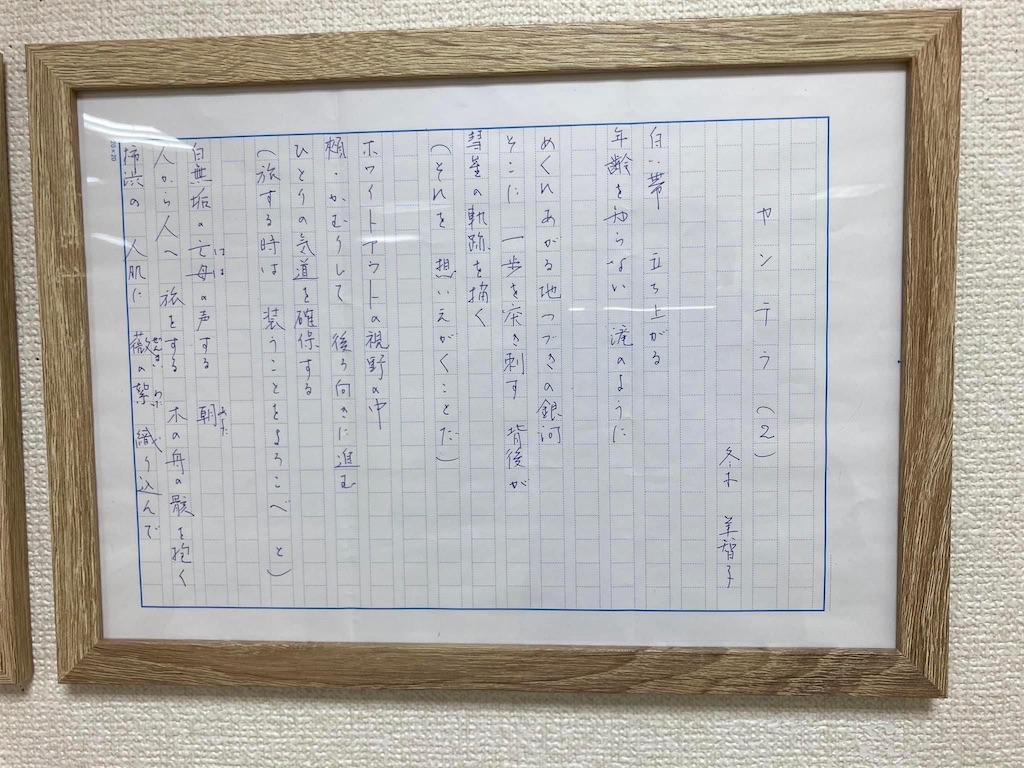 ヤンテラ(2)
冬木 美智子
白い帯 立ち上がる
年齢を知らない 滝のように
めくれあがる地つづきの銀河
そこに 一歩を突き刺す 背後が
彗星の軌跡を描く
(それを 想いえがくことだ)
ホワイトアウトの視野の中
頬っかむりして 後ろ向きに進む
ひとりの気道を確保する
(旅する時は 装うことをよろこべ と)
白無垢の亡母の声する 朝
人から人へ 旅をする 木の舟の骸を抱く
柿渋の 人肌に 薇の絮 織り込んで
20×20